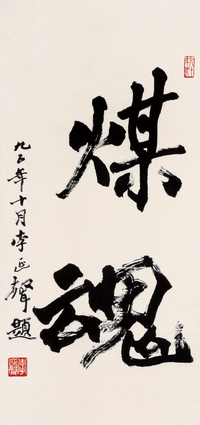 煤
魂
九五年十月李延声题